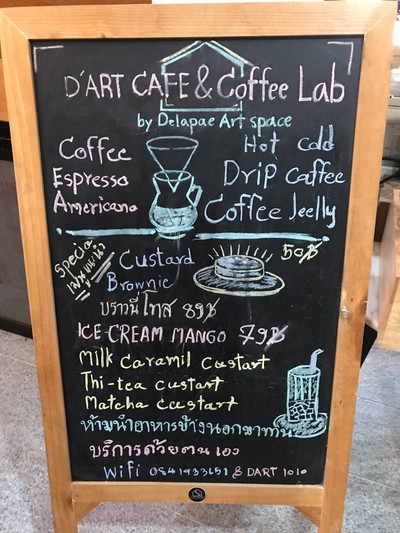 D'ART CAFE & Coffee Lab
by Delapae Art space
Coffee
Espresso
Americano
Hot Cold
Drip Caffee
Coffee Jeelly
Special
เมนูแนะนำ
Custard 50฿
Brownie
บราวนี่โทส 89฿
ICE-CREAM MANGO 79฿
Milk Caramil Custart
Thi-tea custart
Matcha custart
ห้ามนำอาหารข้างนอกมาทาน
บริการด้วยตนเอง
Wifi 0841933651 & DART 1010